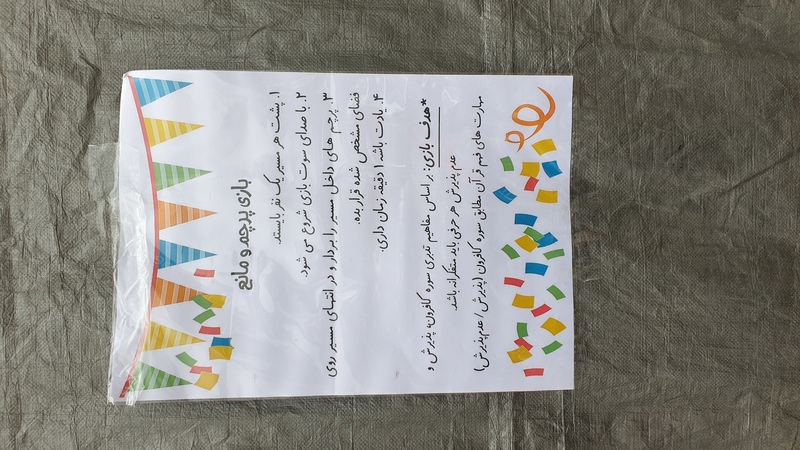 بازی پرچم و مانع
۱. پشت هر مسیر یک نفر بایستد.
۲. با صدای سوت بازی شروع می شود.
۳. پرچم های داخل مسیر را بردار و در انتهای مسیر روی
فضای مشخص شده قرار بده.
۴. یادت باشه ۱ دقیقه زمان داری.
*هدف بازی: بر اساس مفاهیم تدبری سوره کافرون، پذیرش و
عدم پذیرش هر حرفی باید متفکرانه باشد.
مهارت های فهم قرآن مطابق سوره کافرون (پذیرش / عدم پذیرش)